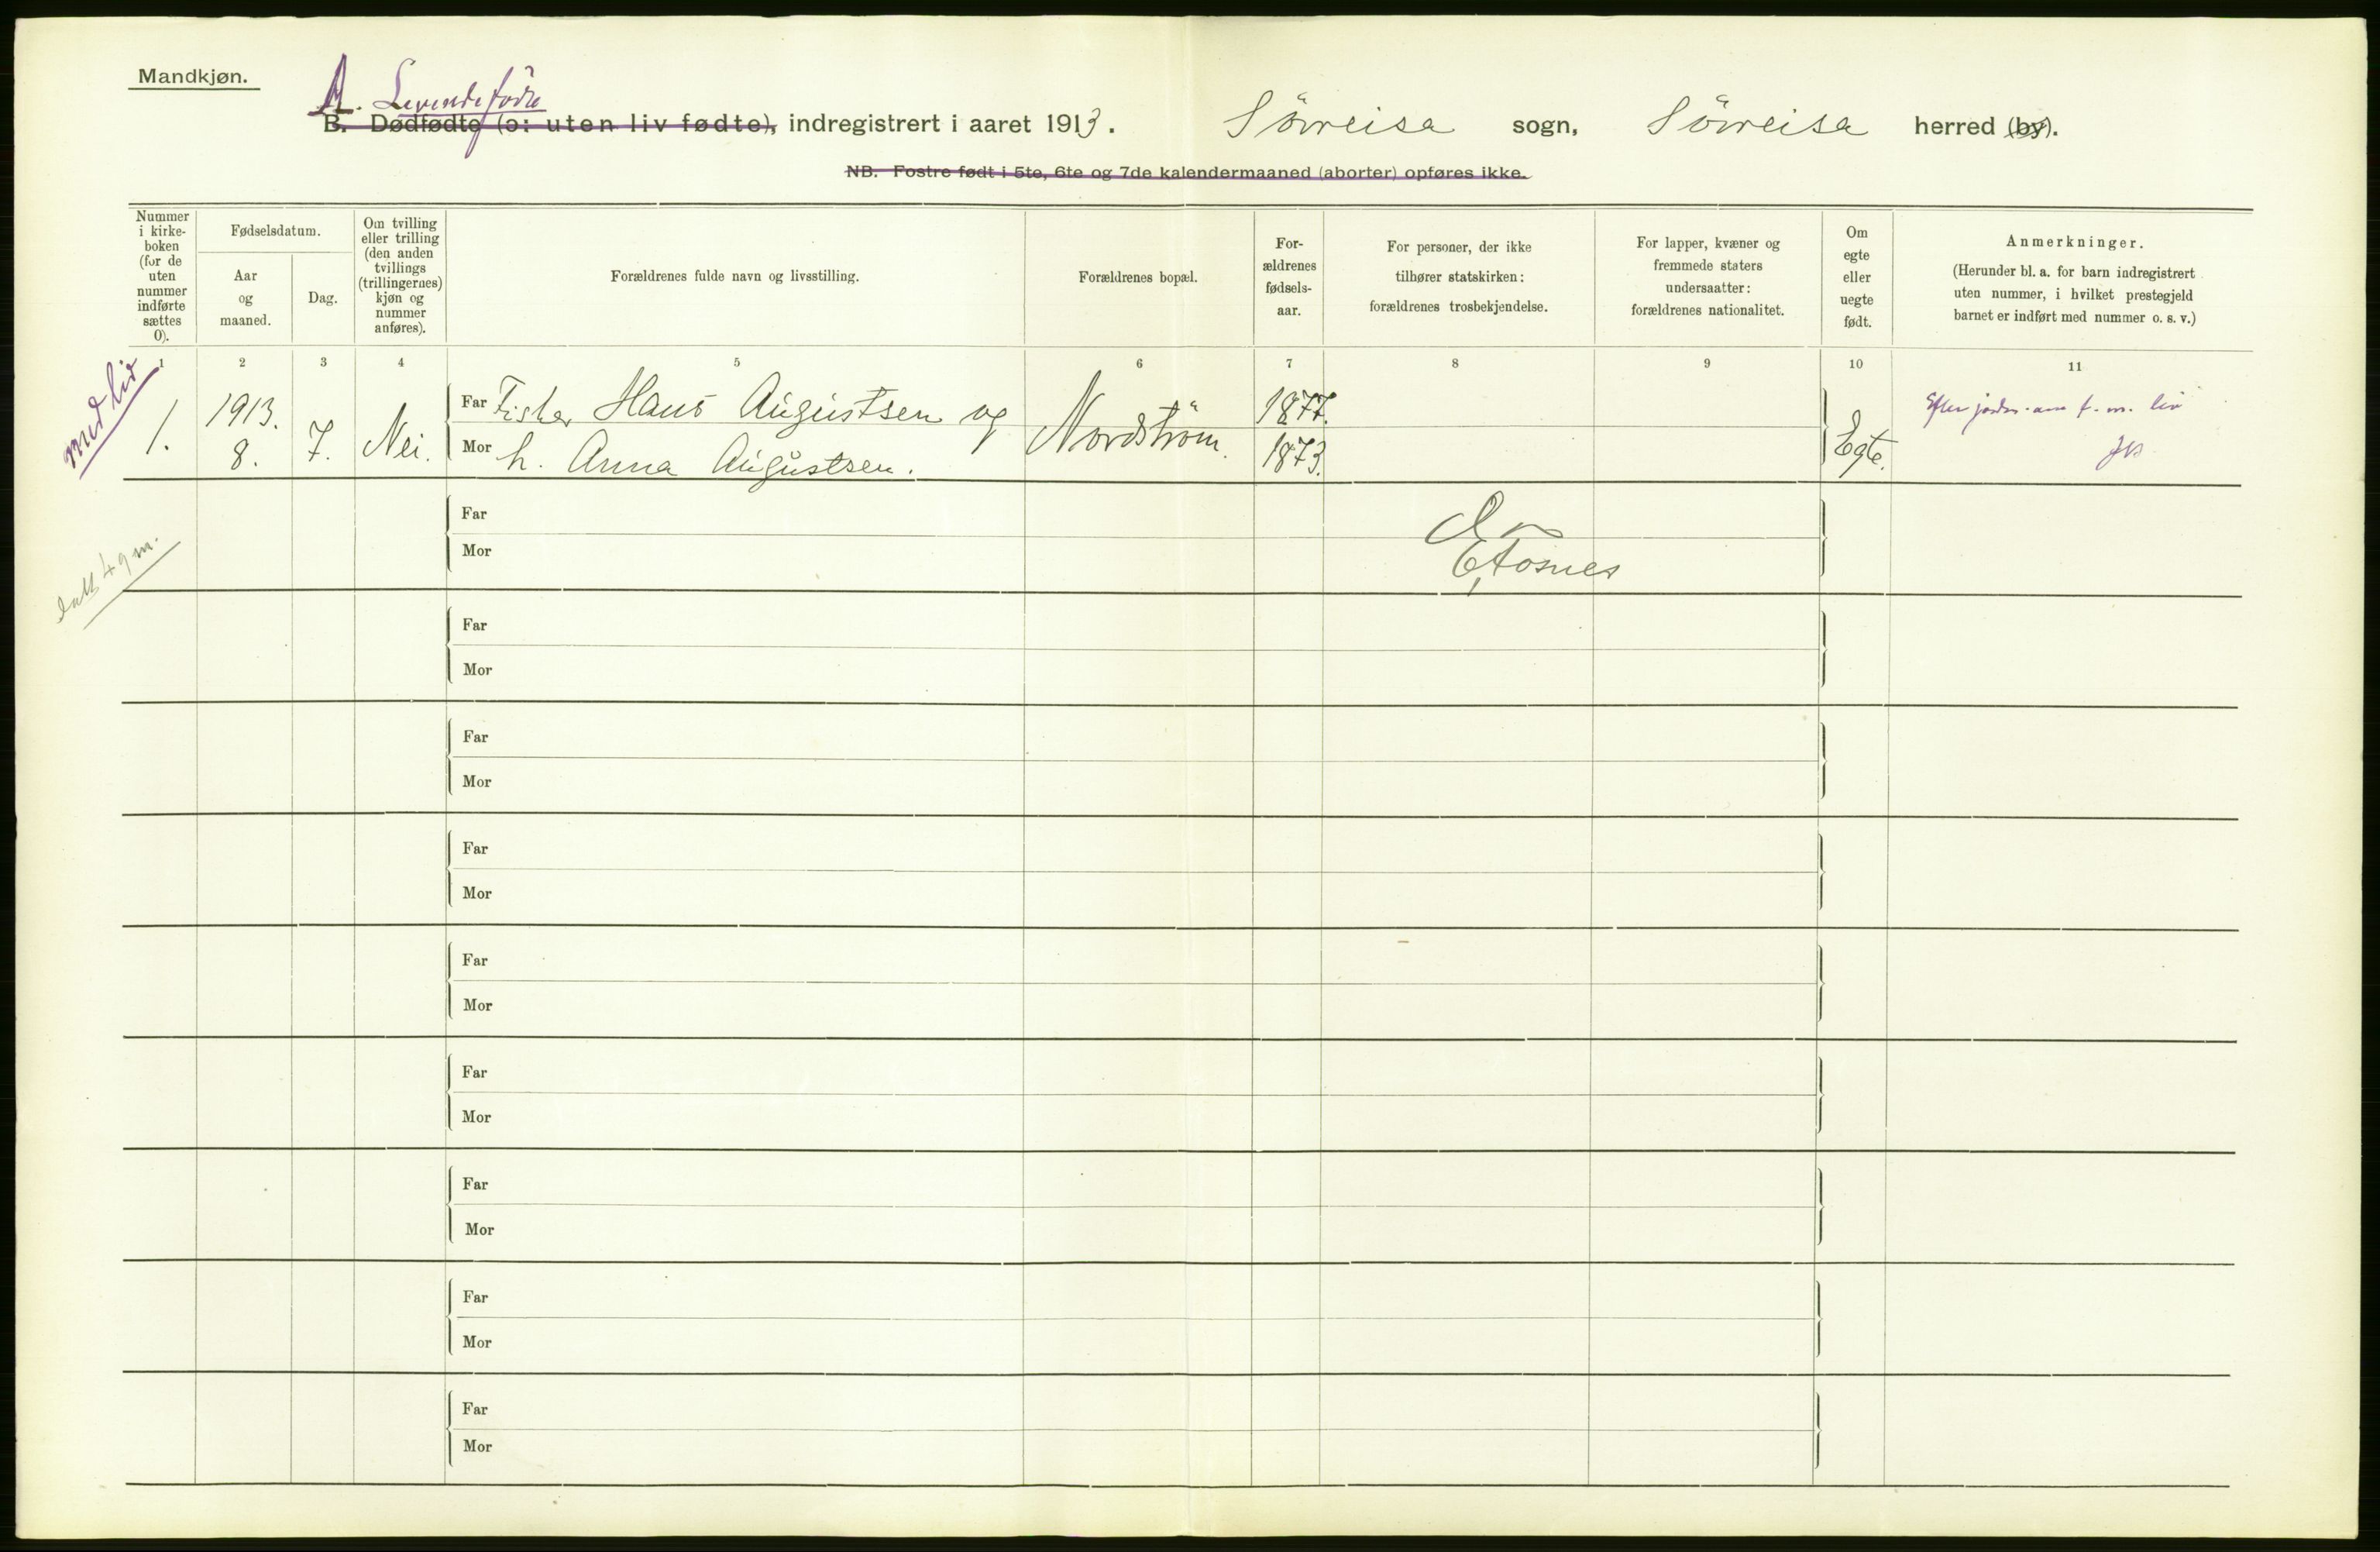 Mandkjøn.
A. Levendefödte
B. Dødfødte (ɔ: uten liv fødte), indregistrert i aaret 1913. Sörreisa sogn, Sörreisa herred (by).
NB. Fostre født i 5te, 6te og 7de kalendermaaned (aborter) opføres ikke.
Nummer i kirke- boken (for de uten nummer indførte sættes 0).
Fødselsdatum.
Aar og maaned.
Dag.
Om tvilling eller trilling (den anden tvillings (trillingernes) kjøn og nummer anføres).
Forældrenes fulde navn og livsstilling.
Forældrenes bopæl.
For- ældrenes fødsels- aar.
For personer, der ikke tilhører statskirken: forældrenes trosbekjendelse.
For lapper, kvæner og fremmede staters undersaatter: forældrenes nationalitet.
Om egte eller uegte født.
Anmerkninger.
(Herunder bl. a. for barn indregistrert uten nummer, i hvilket prestegjeld barnet er indført med nummer o. s. v.)
1 2 3 4 5 6 7 8 9 10 11
med liv
1. 1913. 8. 7. Nei.
Far Fisker Hans Augustsen og Nordström. 1877.
Mor h. Anna Augustsen. 1873. Egte.
Efter f. m. liv
Far
Mor
49 m.
Far
Mor
Far
Mor
Far
Mor
Far
Mor
Far
Mor
Far
Mor
Far
Mor
Far
Mor